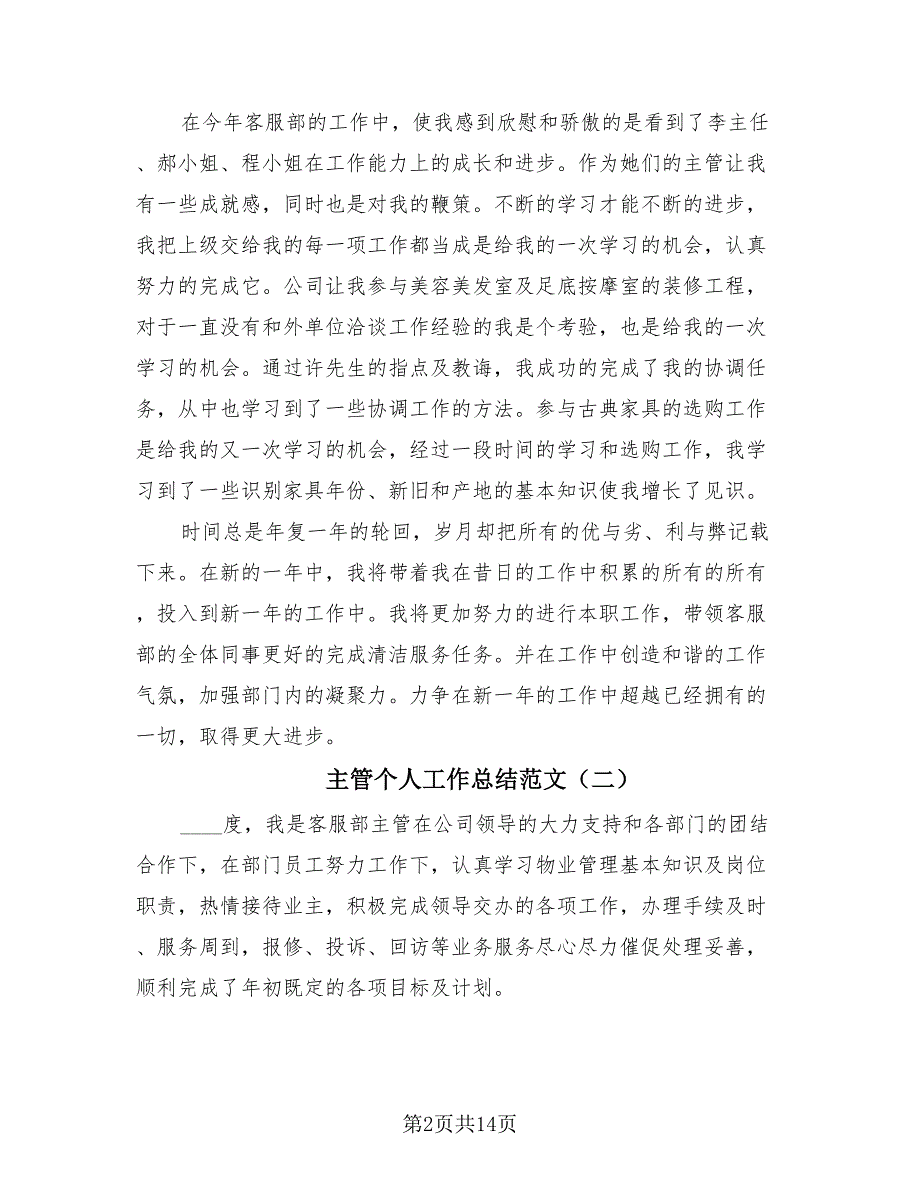 在今年客服部的工作中，使我感到欣慰和骄傲的是看到了李主任
、郝小姐、程小姐在工作能力上的成长和进步。作为她们的主管让我
有一些成就感，同时也是对我的鞭策。不断的学习才能不断的进步，
我把上级交给我的每一项工作都当成是给我的一次学习的机会，认真
努力的完成它。公司让我参与美容美发室及足底按摩室的装修工程，
对于一直没有和外单位洽谈工作经验的我是个考验，也是给我的一次
学习的机会。通过许先生的指点及教诲，我成功的完成了我的协调任
务，从中也学习到了一些协调工作的方法。参与古典家具的选购工作
是给我的又一次学习的机会，经过一段时间的学习和选购工作，我学
习到了一些识别家具年份、新旧和产地的基本知识使我增长了见识。
时间总是年复一年的轮回，岁月却把所有的优与劣、利与弊记载
下来。在新的一年中，我将带着我在昔日的工作中积累的所有的所有
，投入到新一年的工作中。我将更加努力的进行本职工作，带领客服
部的全体同事更好的完成清洁服务任务。并在工作中创造和谐的工作
气氛，加强部门内的凝聚力。力争在新一年的工作中超越已经拥有的
一切，取得更大进步。
主管个人工作总结范文（二）
____度，我是客服部主管在公司领导的大力支持和各部门的团结
合作下，在部门员工努力工作下，认真学习物业管理基本知识及岗位
职责，热情接待业主，积极完成领导交办的各项工作，办理手续及时
、服务周到，报修、投诉、回访等业务服务尽心尽力催促处理妥善，
顺利完成了年初既定的各项目标及计划。
第2页共14页